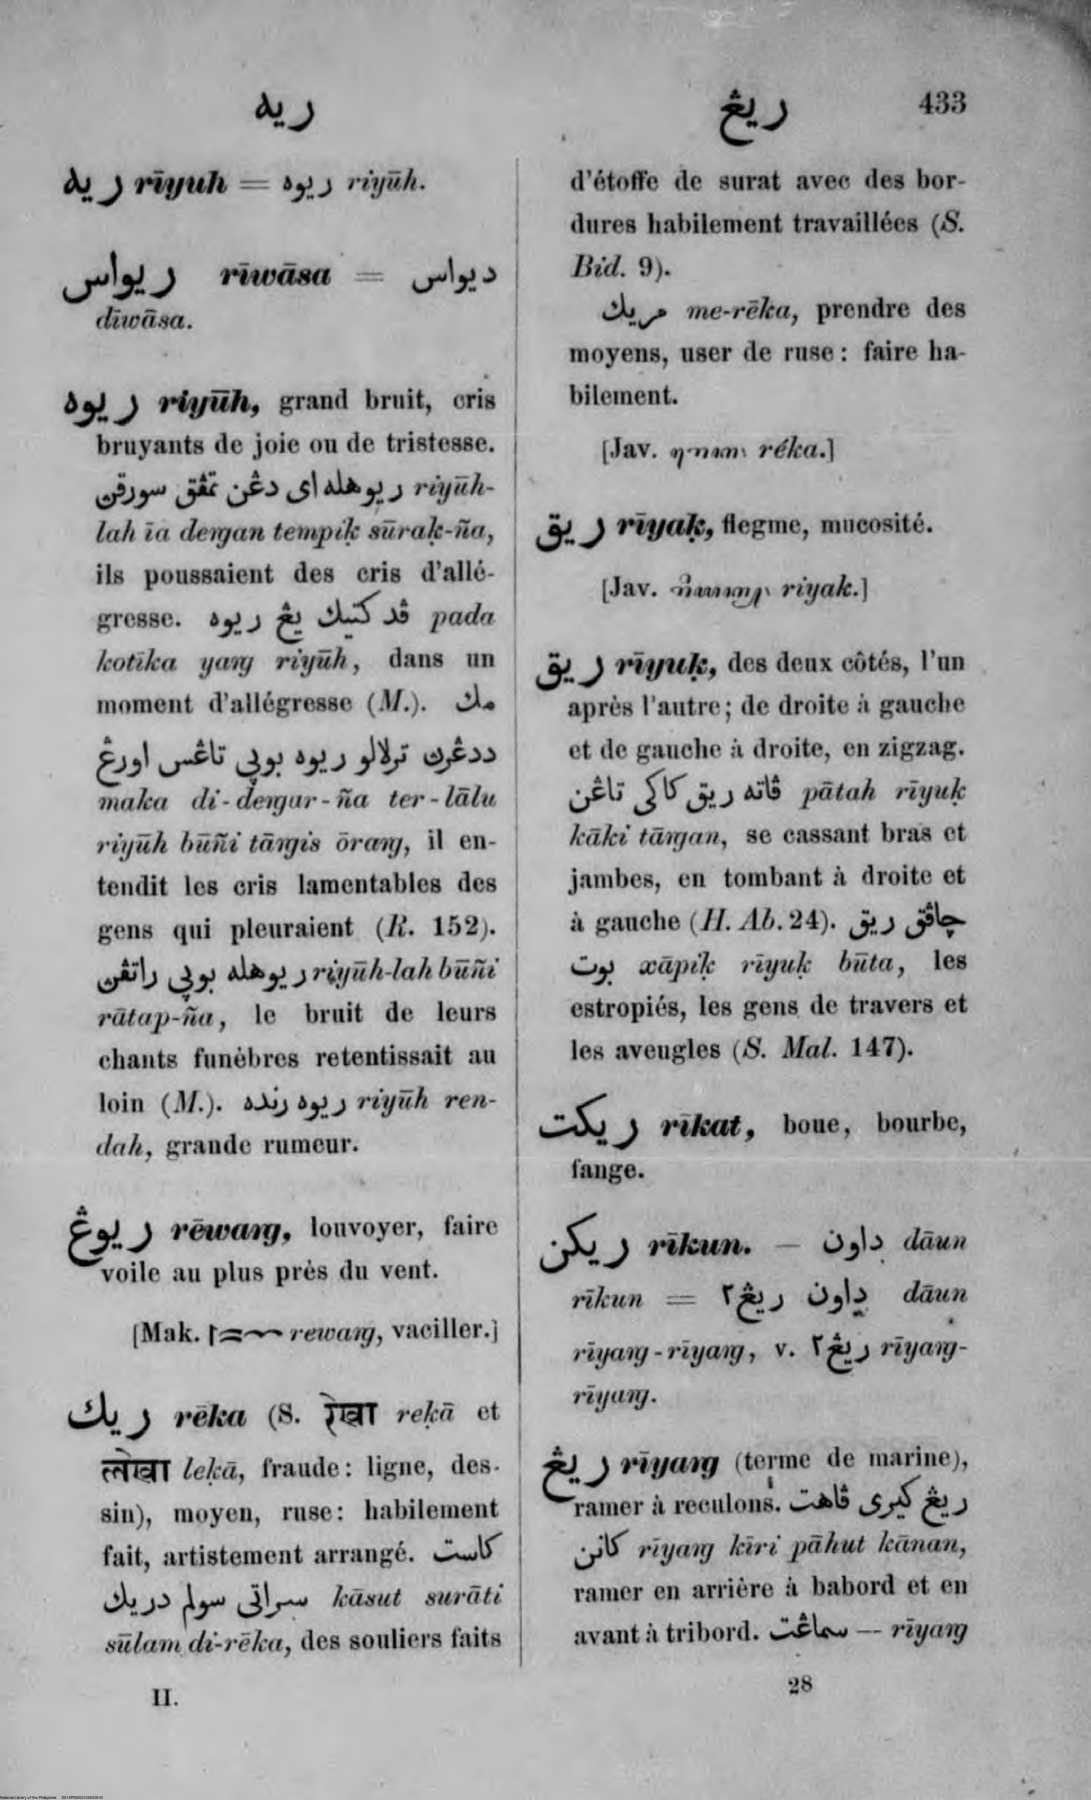 ريه
ريڠ 433
ريه rīyuh = ريوه riyūh.
ريواس rīwāsa = ديواس
dīwāsa.
ريوه riyūh, grand bruit, cris
bruyants de joie ou de tristesse.
ريوهله اي دڠن تمڤق سورقن riyūh-
lah īa deṛgan tempiḳ sūraḳ-ña,
ils poussaient des cris d'allé-
gresse. ڤد كتيك يڠ ريوه pada
kotīka yaṛg riyūh, dans un
moment d'allégresse (M.). مك
ددڠرڽ ترلالو ريوه بوڽي تاڠس اورڠ
maka di-deṛgar-ña ter-lālu
riyūh būñi tāṛgis ōraṛg, il en-
tendit les cris lamentables des
gens qui pleuraient (R. 152).
ريوهله بوڽي راتڤن riyūh-lah būñi
rātap-ña, le bruit de leurs
chants funèbres retentissait au
loin (M.). ريوه رنده riyūh ren-
dah, grande rumeur.
ريوڠ rēwaṛg, louvoyer, faire
voile au plus près du vent.
[Mak. rewaṛg, vaciller.]
ريك rēka (S. रेखा reḳā et
लेखा leḳā, fraude: ligne, des-
sin), moyen, ruse: habilement
fait, artistement arrangé. كاست
سراتي سولم دريك kāsut surāti
sūlam di-rēka, des souliers faits
II.
d'étoffe de surat avec des bor-
dures habilement travaillées (S.
Bid. 9).
مريك me-rēka, prendre des
moyens, user de ruse: faire ha-
bilement.
[Jav. réka.]
ريق rīyaḳ, flegme, mucosité.
[Jav. riyak.]
ريق rīyuḳ, des deux côtés, l'un
après l'autre; de droite à gauche
et de gauche à droite, en zigzag.
ڤاته ريق كاكي تاڠن pātah rīyuḳ
kāki tāṛgan, se cassant bras et
jambes, en tombant à droite et
à gauche (H. Ab. 24). چاڤق ريق
بوت xāpiḳ rīyuḳ būta, les
estropiés, les gens de travers et
les aveugles (S. Mal. 147).
ريكت rīkat, boue, bourbe,
fange.
ريكن rīkun. — داون dāun
rīkun = داون ريڠ٢ dāun
rīyaṛg-rīyaṛg, v. ريڠ٢ rīyaṛg-
rīyaṛg.
ريڠ rīyaṛg (terme de marine),
ramer à reculons. ريڠ كيري ڤاهت
كانن rīyaṛg kīri pāhut kānan,
ramer en arrière à babord et en
avant à tribord. سماڠت — rīyaṛg
28